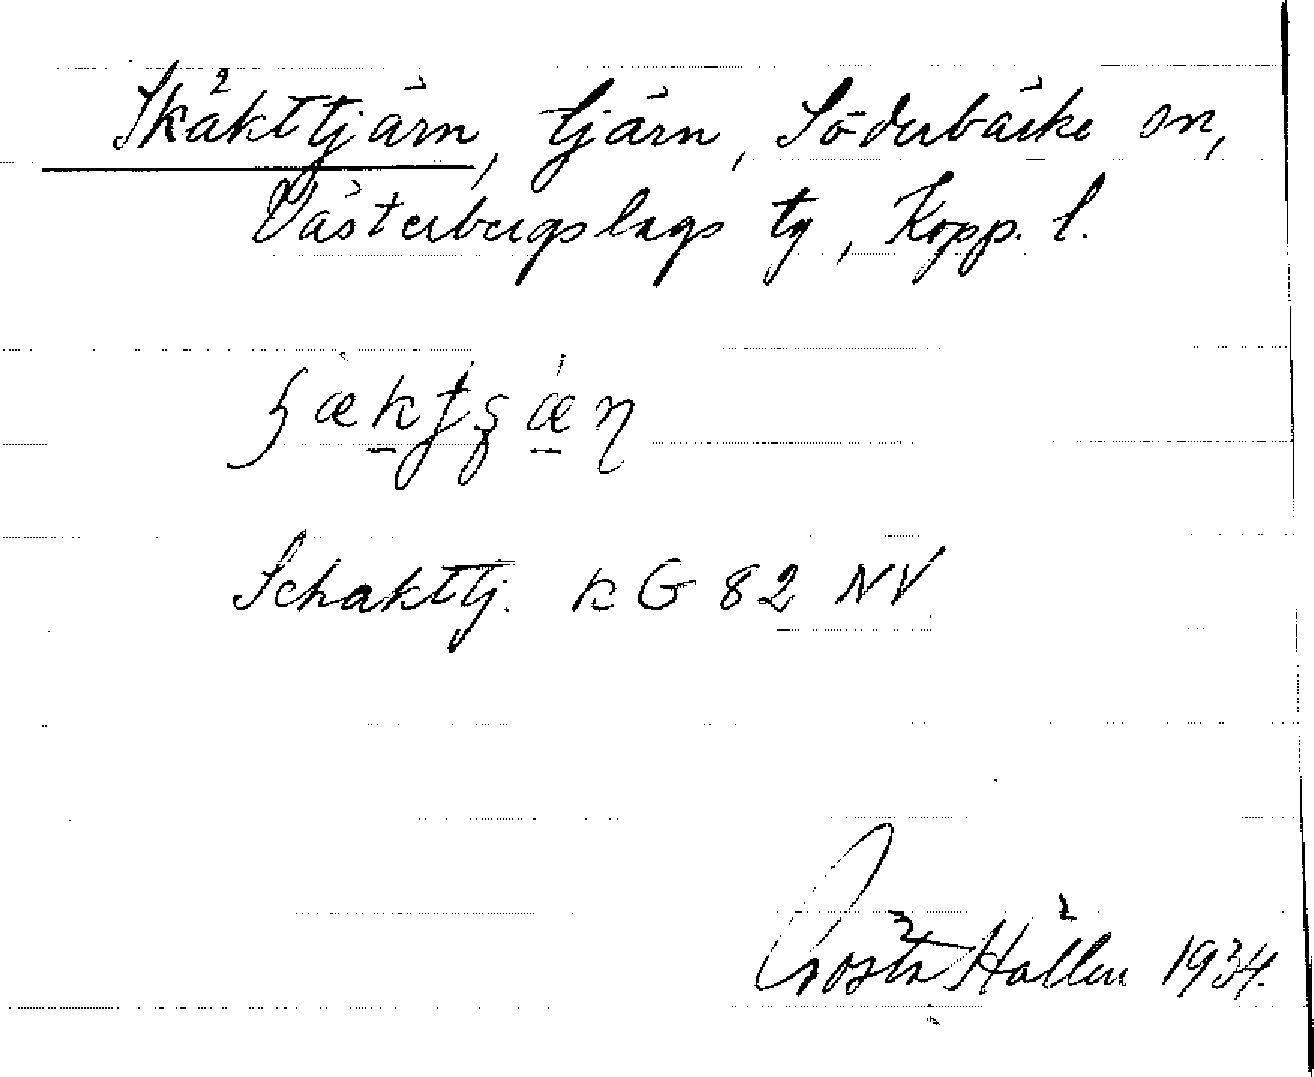 Skäkttjärn, tjärn, Söderbärke sn,
Västerbergslags tg, Kopp. l.
Schakttj. k G 82 NV
Gösta Hållen 1934.